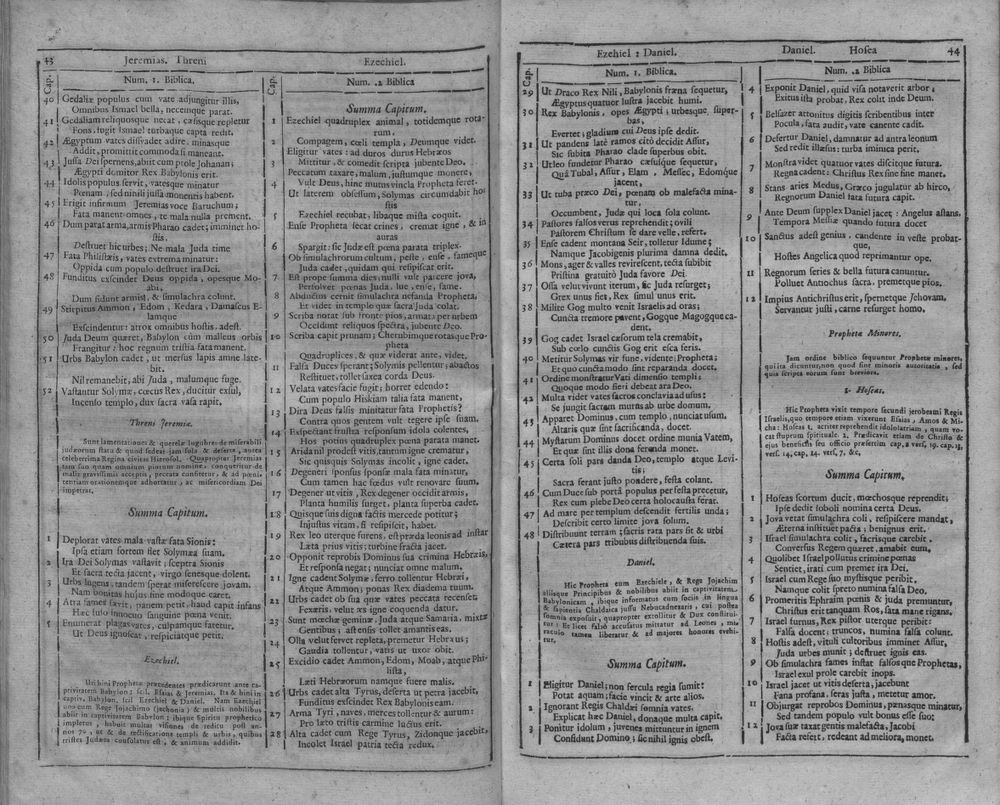 43 Jeremias. Threni Ezechiel.
Cap. Num. 1. Biblica.
40 Gedaliæ populus cum vate adjungitur illis,
Omnibus Ismael bella, necemque parat.
41 Gedaliam reliquosque necat, cæsisque repletur
Fons, fugit Ismael turbaque capta redit.
42 Ægyptum vates dissvadet adire, minasque
Addit, promittit commoda si maneant.
43 Jussa Dei spernens, abiit cum ptole Johanan;
Ægypti domitor Rex Babylonis erit.
44 Idolis populus servit, vatesque minatur
Pœnam, sed nihil jussa monentis habent.
45 Erigit infirmum Jeremias voce Baruchum;
Fata manent omnes, te mala nulla prement.
46 Dum parat arma, armis Pharao cadet; imminet ho-
stis
Destruet hic urbes; Ne mala Juda time
47 Fata Philistæis, vates extrema minatur:
Oppida cum populo destruet ira Dei.
48 Funditus exscindet Deus oppida, opesque Mo-
abi,
Dum fidunt armis, & simulachra colunt.
49 Stirpitus Ammon, Edom, Kedara, Damascus E-
lamque
Exscindentur: atrox omnibus hostis, adest.
50 Juda Deum quæret, Babylon cum malleus orbis
Frangitur; hoc regnum tristia fata manent.
51 Urbs Babylon cadet, ut mersus lapis amne late-
bit,
Nil remanebit, abi Juda, malumque fuge.
52 Vastantur Solymæ, cœcus Rex, ducitur exsul,
Incenso templo, dux sacra vasa rapit.
Threni Jeremiæ.
Sunt lamentationes & querelæ lugubres de miserabili
judæorum statu & quod sedeat jam sola & deserta, autea
celeberrima Regina civitas Hierosol. Quapropter Jeremias
jam suo quam omnium piorum nomine, conqueritur de
malis gravissimis acceptis, peccata confitetur, & ad pœni-
tentiam orationemque adhortatur, ac misericordiam Dei
impetrat.
Summa Capitum.
1 Deplorat vates mala vastæ fata Sionis:
Ipsa etiam sortem flet Solymæa suam.
2 Ira Dei Solymas vastavit; sceptra Sionis
Et sacra tecta jacent, virgo senesque dolent.
3 Urbs lugens, tandem sperat miserescere jovam.
Nam bonitas hujus fine modoque caret.
4 Atra fames sævit, panem petit, haud capit infans
Hæc sulo innocuo sanguine pœna venit.
5 Enumerat plagas vates, culpamque fatetur.
Ut Deus ignoscat, respiciatque petit.
Ezechiel.
Uti bini Prophetæ præcedentes prædicarunt ante ca-
ptivitatem Babylon: scil. Esaias & Jeremias, Ita & bini in
captiv, Babylon, scil Ezechiel & Daniel. Nam Ezechiel
una cum Rege Jojachimo (jechonia) & multis nobilibus
abiit in captivitatem Babylon; ibique Spiritu prophetico
impletus, habuit multas visiones de reditu post an-
nos 70, ut & de restificatione templi & urbis, quibus
tristes Judæos consolatus est, & animum addidit.
Cap. Num. 2 Biblica
Summa Capitum.
1 Ezechiel quadruplex animal, totidemque rota-
rum.
2 Compagem, cœli templa, Deumque videt.
Eligitur vates: ad duros durus Hebræos
3 Mittitur, & comedit scripta jubente Deo.
Peccatum taxare, malum, justumque monere,
4 Vult Deus, hinc mutus vincla Propheta feret.
Ut laterem obsessum, Solymas circumdabit ho
stis
5 Ezechiel recubat, libaque mista coquit.
Ense Propheta secat crines, cremat igne, & in
auras
6 Spargit: sic Judæ est pœna parata triplex.
Ob simulachrorum cultum, peste, & ense, fameque
Juda cadet, quidam qui resipiscat erit.
7 Est prope summa dies; nulli vult parcere jova,
Persolvet pœnas Juda, lue, ense, fame.
8 Abductus cernit simulachra nefanda Propheta,
Et videt in templo quæ sacra Juda colat.
9 Scriba notat sub fronte pios, armat; per urbem
Occidunt reliquos spectra, jubente Deo.
10 Scriba capit prunam; Cherubimque rotasque Pro-
pheta
Quadruplices, & quæ viderat ante, videt.
11 Falsa Duces sperant; Solymis pellentur; abactos
Restituet, tollet saxea corda Deus.
12 Velata vates facie fugit; horret edendo:
Cum populo Hiskiam talia fata manent,
13 Dira Deus falsis minitatur fata Prophetis?
Contra quos gentem vult tegere ipse suam.
14 Exspectant frustra responsum idola colentes,
Hos potius quadruplex pœna parata manet.
15 Arida nil prodest vitis, tantum igne crematur,
Sic quisquis Solymas incolit, igne cadet.
16 Degeneri sponsus sponsæ mala fata minatur,
Cum tamen hac fœdus vult renovare suum.
17 Degener ut vitis, Rex degener occidit armis,
Planta humilis surget, planta superba cadet.
18 Quisque suis digna factis mercede potitur;
Injustus vitam, si resipiscit, habet.
19 Rex leo uterque furens, est præda leonis ad instar
Læta prius vitis; turbine fracta jacet.
20 Opponit reprobis Dominus sua crimina Hebræis,
Et responsa negat; nunciat omne malum.
21 Igne cadent Solymæ, ferro tollentur Hebræi,
Atque Ammon; ponas Rex diadema tuum.
22 Urbs cadet ob sua quæ vates peccata recenset;
Fexæris, velut æs igne coquenda datur.
23 Sunt mœchæ geminæ, Juda atque Samaria, mixtæ
Gentibus, ast ensis tollet amantis eas.
24 Olla velut fervet repleta, premetur Hebræus;
Gaudia tollentur, vatis ut uxor obit.
25 Excidio cadet Ammon, Edom, Moab, atque Phi-
lista,
Læti Hebræorum namque fuere malis.
26 Urbs cadet alta Tyrus, deserta ut petra jacebit,
Funditus exscindet Rex Babylonis eam.
27 Arma Tyri, naves, merces tolluntur & aurum:
Pro læto tristis carmine luctus erit.
28 Alta cadet cum Rege Tyrus, Zidonque jacebit,
Incolet Israel patria tecta redux.
Ezechiel: Daniel.
Cap. Num. 1. Biblica.
29 Ut Draco Rex Nili, Babylonis fræna sequetur,
Ægyptus quatuor lustra jacebit humi.
30 Rex Babylonis, opes Ægypti; urbesque super-
bas,
Evertet; gladium cui Deus ipse dedit.
31 Ut pandens late ramos cito decidit Assur,
Sic subita Pharao clade superbus obit.
32 Ut leo funditur Pharao cæsusque sequetur,
Quâ Tubal, Assur, Elam, Messec, Edomque
jacent,
33 Ut tuba præco Dei, pœnam ob malefacta mina-
tur,
Occumbent, Juda qui loca sola colunt.
34 Pastores falsos verus reprehendit; ovili
Pastorem Christum se dare velle, refert.
35 Ense cadent montana Seir, tolletur Idume;
Namque Jacobigenis plurima damna dedit.
36 Mons, ager & valles revirescent, tecta subibit
Pristina gratuito Juda favore Dei.
37 Ossa velut vivunt iterum, sic Juda resurget;
Grex unus fiet, Rex simul unus erit.
38 Milite Gog multo venit Israelis ad oras;
Cuncta tremore pavent, Gogque Magogque ca-
dent,
39 Gog cadet Israel cæsorum tela cremabit,
Sub cœlo cunctis Gog erit esca feris.
40 Metitur Solymas vir fune, vidente; Propheta;
Et quo cuncta modo sint reparanda docet.
41 Ordine monstratur Vati dimensio templi;
Quoque modo fieri debeat ara Deo.
42 Multa videt vates sacros conclavia ad usus:
Se jungit sacram murus ab urbe domum.
43 Apparet Dominus, cum templo, nunciat usum.
Altaris quæ sint sacrificanda, docet.
44 Mystarum Dominus docet ordine munia Vatem,
Et quæ sint illis dona ferenda monet.
45 Certa soli pars danda Deo, templo atque Levi-
tis:
Sacra ferant justo pondere, festa colant.
46 Cum Duce sub portâ populus per festa precetur,
Rex cum plebe Deo certa holocausta ferat.
47 Ad mare per templum descendit fertilis unda;
Describit certo limite jova solum.
48 Distribuunt terram; sacris rata pars sit & urbi
Cætera pars tribubus distribuenda suis.
Daniel.
Hic Propheta cum Ezechiele, & Rege Jojachim
aliisque Principibus & nobilibus abiit in captivitatem.
Babylonicam, ibique informatus cum sociis in lingua
& sapientia Chaldaica jussu Nebucadnezaris, cui postea
somnia exposuit, quapropter extollitur & Dux constitui-
tur: Et licet falso accusatus mittatur ad Leones, mi-
raculo tamen liberatur & ad majores honores evehi-
tur.
Summa Capitum.
1 Eligitur Daniel; non fercula regia sumit:
Potat aquam; facie vincit & arte alios.
2 Ignorant Regis Chaldæi somnia vates.
Explicat hæc Daniel, donaque multa capit.
3 Ponitur idolum, juvenes mittuntur in ignem
Confidunt Domino; sic nihil ignis obest.
Daniel. Hosea 44
Num. 2 Biblica
4 Exponit Daniel, quid visa notaverit arbor;
Exitus ista probat, Rex colit inde Deum.
5 Belsazer attonitus digitis scribentibus inter
Pocula, fata audit, vate canente cadit.
6 Desertur Daniel, damnatur ad antra leonum
Sed redit illæsus: turba inimica perit.
7 Monstra videt quatuor vates discitque futura.
Regna cadent: Christus Rex sine fine manet.
8 Stans aries Medus, Græco jugulatur ab hirco,
Regnorum Daniel fata futura capit.
9 Ante Deum supplex Daniel jacet: Angelus astans.
Tempora Messiæ quando futura docet
10 Sanctus adest genius, candente in veste probat-
que,
Hostes Angelica quod reprimantur ope.
11 Regnorum series & bella futura canuntur.
Polluet Antiochus sacra, premetque pios.
12 Impius Antichristus erit, spernetque Jehovam.
Servantur justi, carne resurget homo.
Prophetæ Minores.
Jam ordine biblico sequuntur Prophetæ minores,
qui ita dicuntur, non quod sint minoris autoritatis, sed
quia scripta eorum sunt breviora.
1. Hoseas.
Hic Propheta vixit tempore secundi jeroboami Regis
Israelis, quo tempore etiam vixerunt Esaias, Amos & Mi-
cha: Hoseas 1. acriter reprehendit idololatriam, quam vo-
cat stuprum spirituale. 2. Prædicavit etiam de Christo &
ejus beneficiis seu officio præsertim cap, 2 vers, 19. cap. 13,
vers. 14, cap, 14. vers, 7. &c,
Summa Capitum.
1 Hoseas scortum ducit, mœchosque reprendit;
Ipse dedit soboli nomina certa Deus.
2 Jova vetat simulachra coli, resipiscere mandat,
Æterna instituet pacta; benignus erit.
3 Israel simulachra colit, sacrisque carebit.
Conversus Regem quæret, amabit eum,
4 Quolibet Israel pollutus crimine pœnas
Sentiet, irati cum premet ira Dei.
5 Israel cum Rege suo mystisque peribit.
Namque colit spreto numina falsa Deo.
6 Promeritis Ephraim pœnis & Juda premuntur,
Christus erit tanquam Ros, fata mane rigans.
7 Israel furnus, Rex pistor uterque peribit:
Falsa docent; truncos, numina falsa colunt.
8 Hostis adest, vituli cultoribus imminet Assur,
Juda urbes munit; destruet ignis eas.
9 Ob simulachra fames instat falsosque Prophetas,
Israel exul prole carebit inops.
10 Israel jacet ut vitis deserta, jacebunt
Fana profana, feras justa, metetur amor.
11 Objurgat reprobos Dominus, pœnasque minatur,
Sed tandem populo vult bonus esse suo;
12 Jova suæ taxat gentis malefacta, Jacobi
Facta refert, redeant ad meliora, monet.